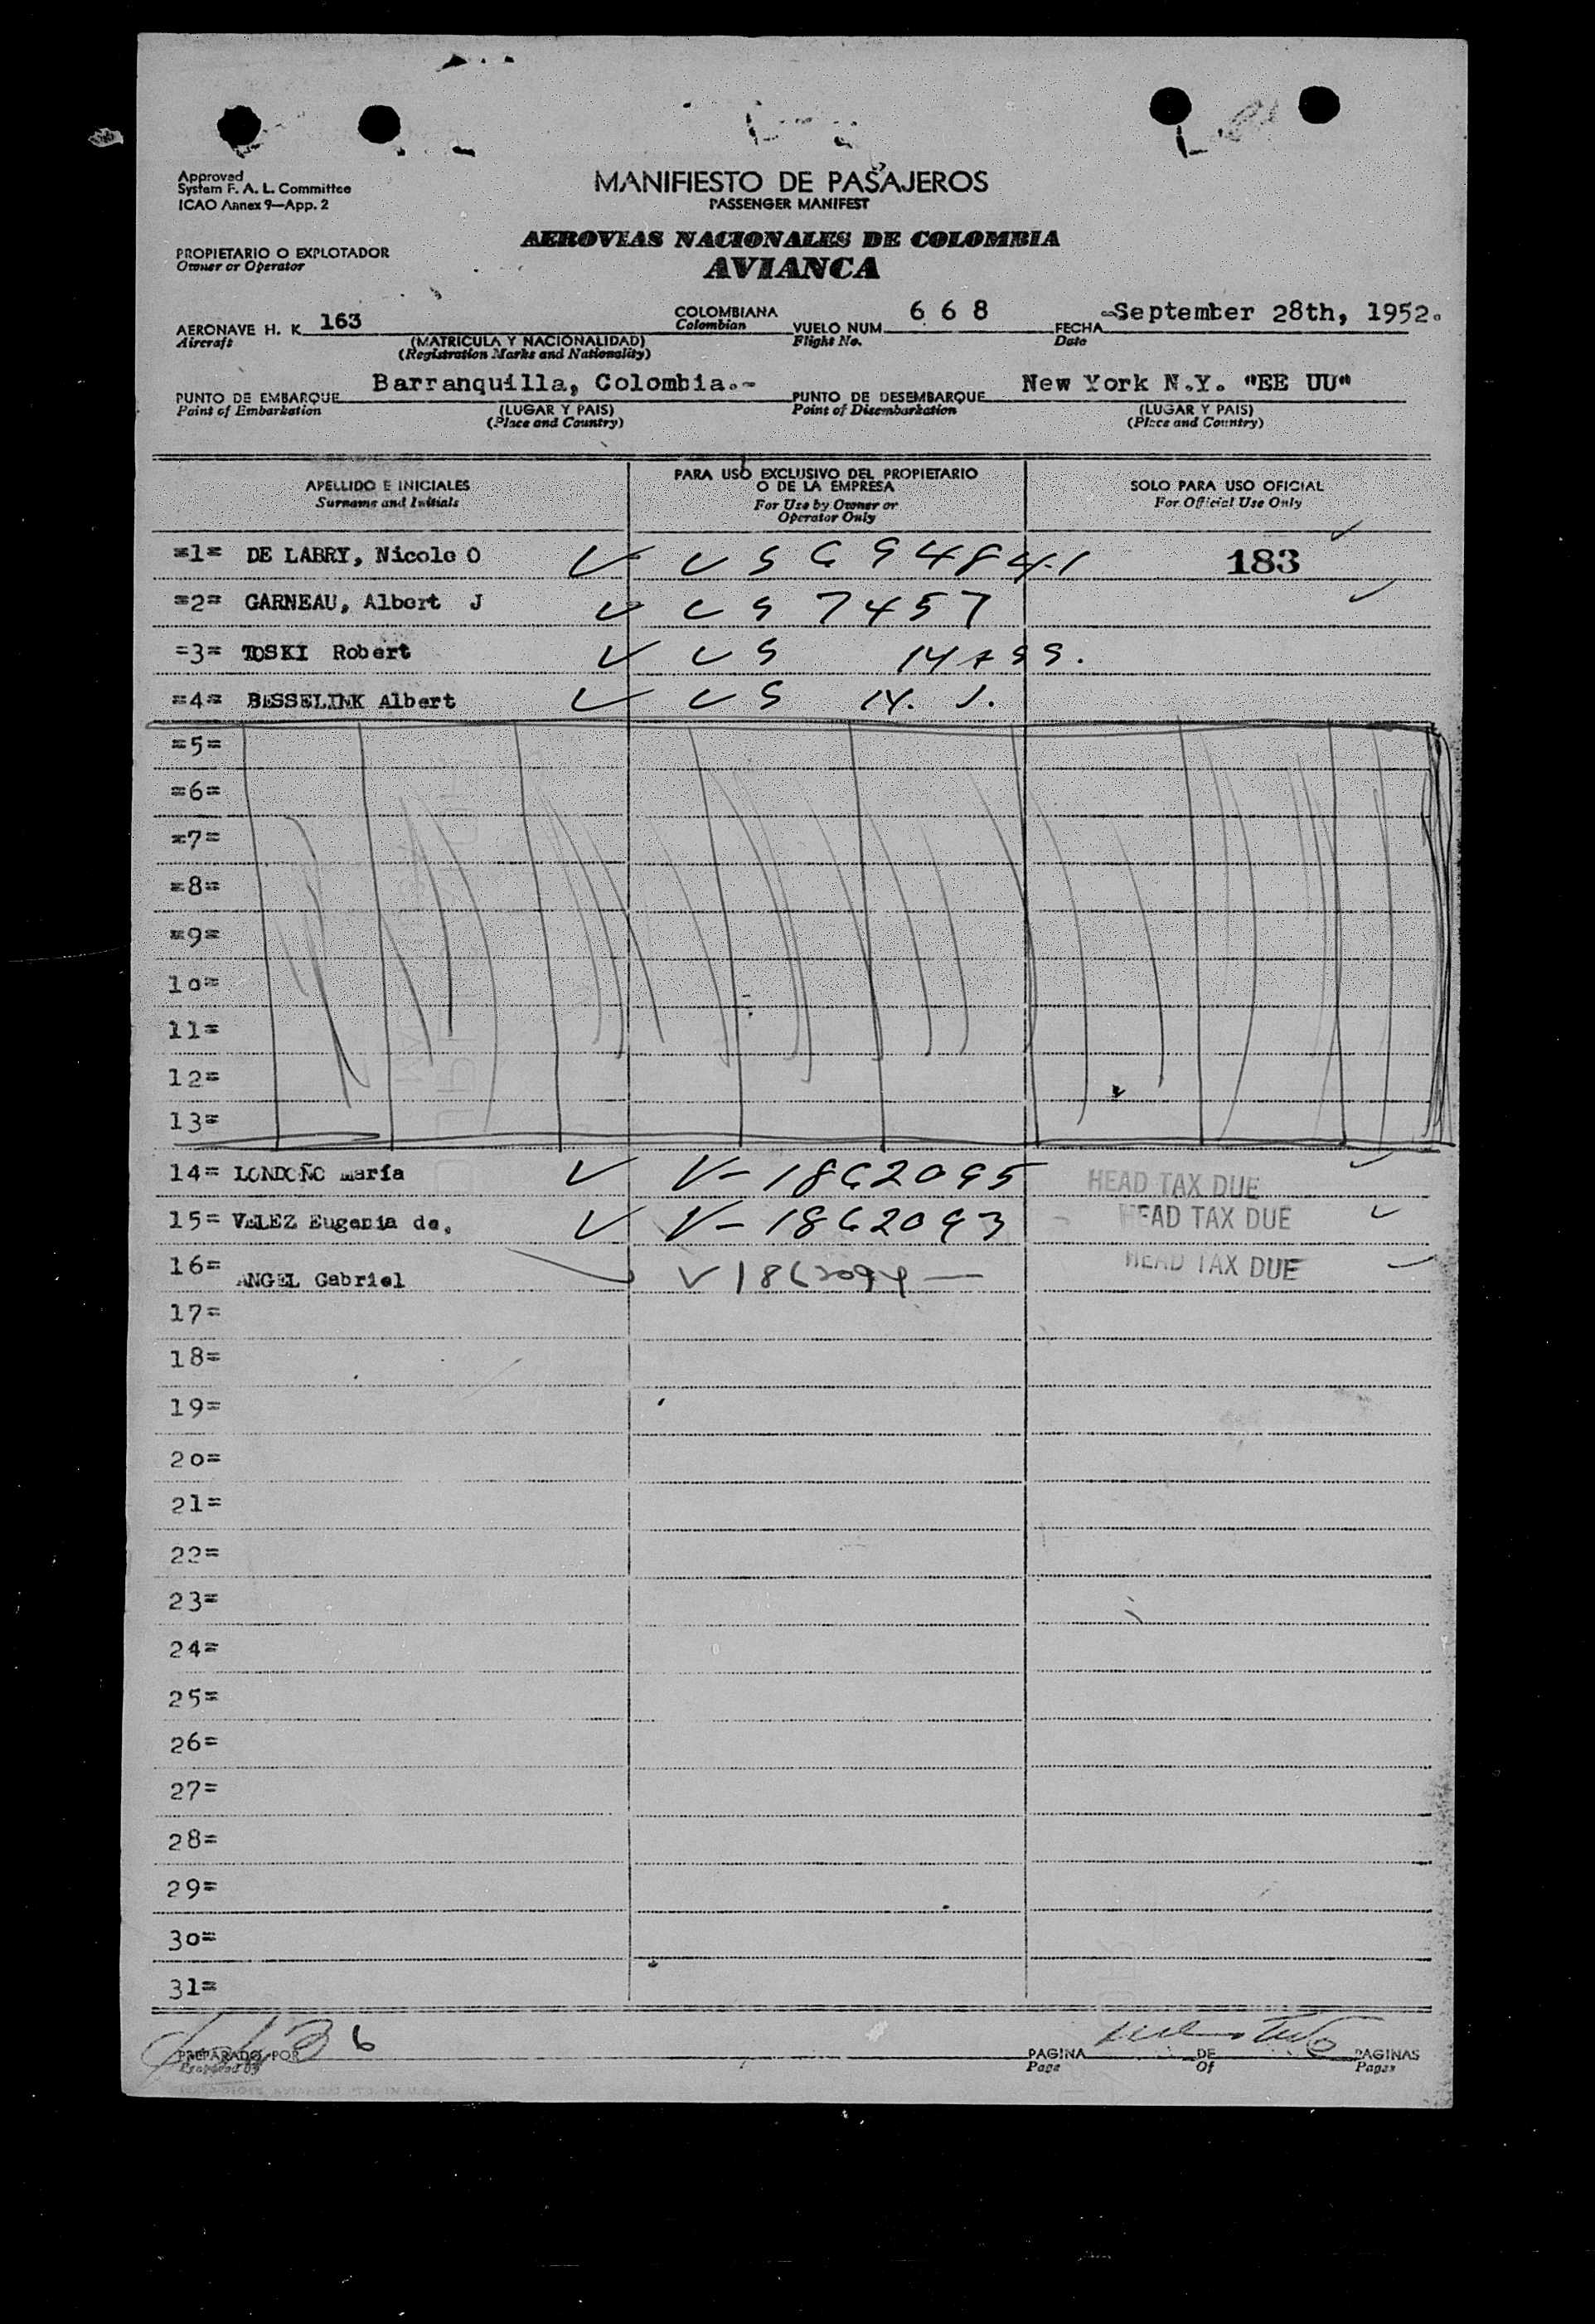 Approved
System F. A. L. Committee
ICAO Annex 9—App. 2
MANIFIESTO DE PASAJEROS
PASSENGER MANIFEST
PROPIETARIO O EXPLOTADOR
Owner or Operator
AEROVIAS NACIONALES DE COLOMBIA
AVIANCA
AERONAVE H. K. 163 COLOMBIANA VUELO NUM. 6 6 8 FECHA September 28th, 1952.
Aircraft (MATRICULA Y NACIONALIDAD) Colombian Flight No. Date
(Registration Marks and Nationality)
PUNTO DE EMBARQUE Barranquilla, Colombia.- PUNTO DE DESEMBARQUE New York N.Y. "EE UU"
Point of Embarkation (LUGAR Y PAIS) Point of Disembarkation (LUGAR Y PAIS)
(Place and Country) (Place and Country)
APELLIDO E INICIALES PARA USO EXCLUSIVO DEL PROPIETARIO SOLO PARA USO OFICIAL
Surname and Initials O DE LA EMPRESA For Official Use Only
For Use by Owner or
Operator Only
=1= DE LABRY, Nicole O US 183
=2= GARNEAU, Albert J US 7457
=3= TOSKI Robert US
=4= BESSELINK Albert US
=5=
=6=
=7=
=8=
=9=
10=
11=
12=
13=
14= LONDOÑO María V-1862095 HEAD TAX DUE
15= VELEZ Eugenia de. V-1862093 HEAD TAX DUE
16= ANGEL Gabriel V1862094 HEAD TAX DUE
17=
18=
19=
20=
21=
22=
23=
24=
25=
26=
27=
28=
29=
30=
31=
PREPARADO POR PAGINA DE PAGINAS
Prepared by Page Of Pages